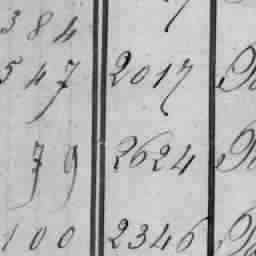 384
547 2017
79 2624
100 2346